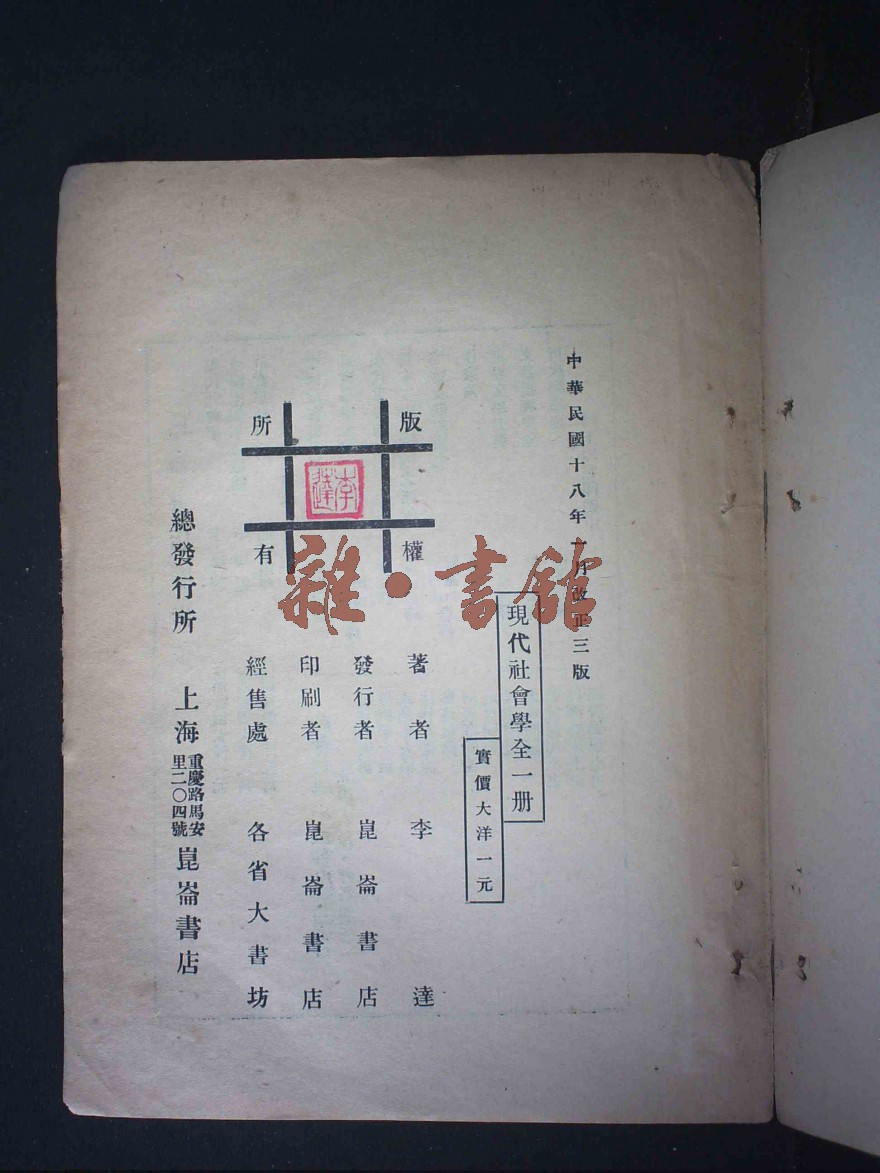 中華民國十八年一月改正三版
現代社會學全一册
實價大洋一元
版權所有
李達
著者 李達
發行者 崑崙書店
印刷者 崑崙書店
經售處 各省大書坊
總發行所 上海重慶路馬安里二〇四號崑崙書店
雜·書館